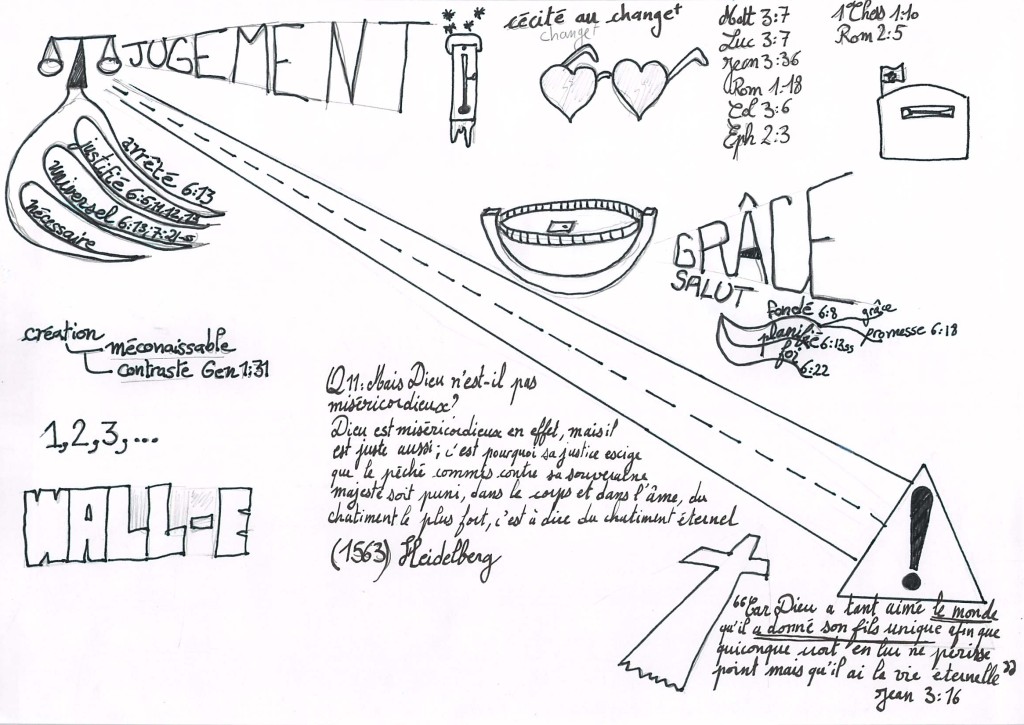 JUGEMENT
arrêté 6:13
justifié 6:5,11,12,13
universel 6:13; 7:21-ss
nécessaire
cécité au changet
change
Matt 3:7
Luc 3:7
Jean 3:36
Rom 1:18
Col 3:6
Eph 2:3
1 Thes 1:10
Rom 2:5
GRÂCE
SALUT
fondé 6:8 grâce
planifié 6:13ss promesse 6:18
foi 6:22
création
méconaissable
contraste Gen 1:31
1,2,3,...
WALL-E
Q11: Mais Dieu n'est-il pas
miséricordieux?
Dieu est miséricordieux en effet, mais il
est juste aussi; c'est pourquoi sa justice exige
que le péché commis contre sa souveraine
majesté soit puni, dans le corps et dans l'âme, du
chatiment le plus fort, c'est à dire du chatiment éternel
(1563) Heidelberg
!
"Car Dieu a tant aimé le monde
qu'il a donné son fils unique afin que
quiconque croit en lui ne périsse
point mais qu'il ai la vie éternelle"
Jean 3:16